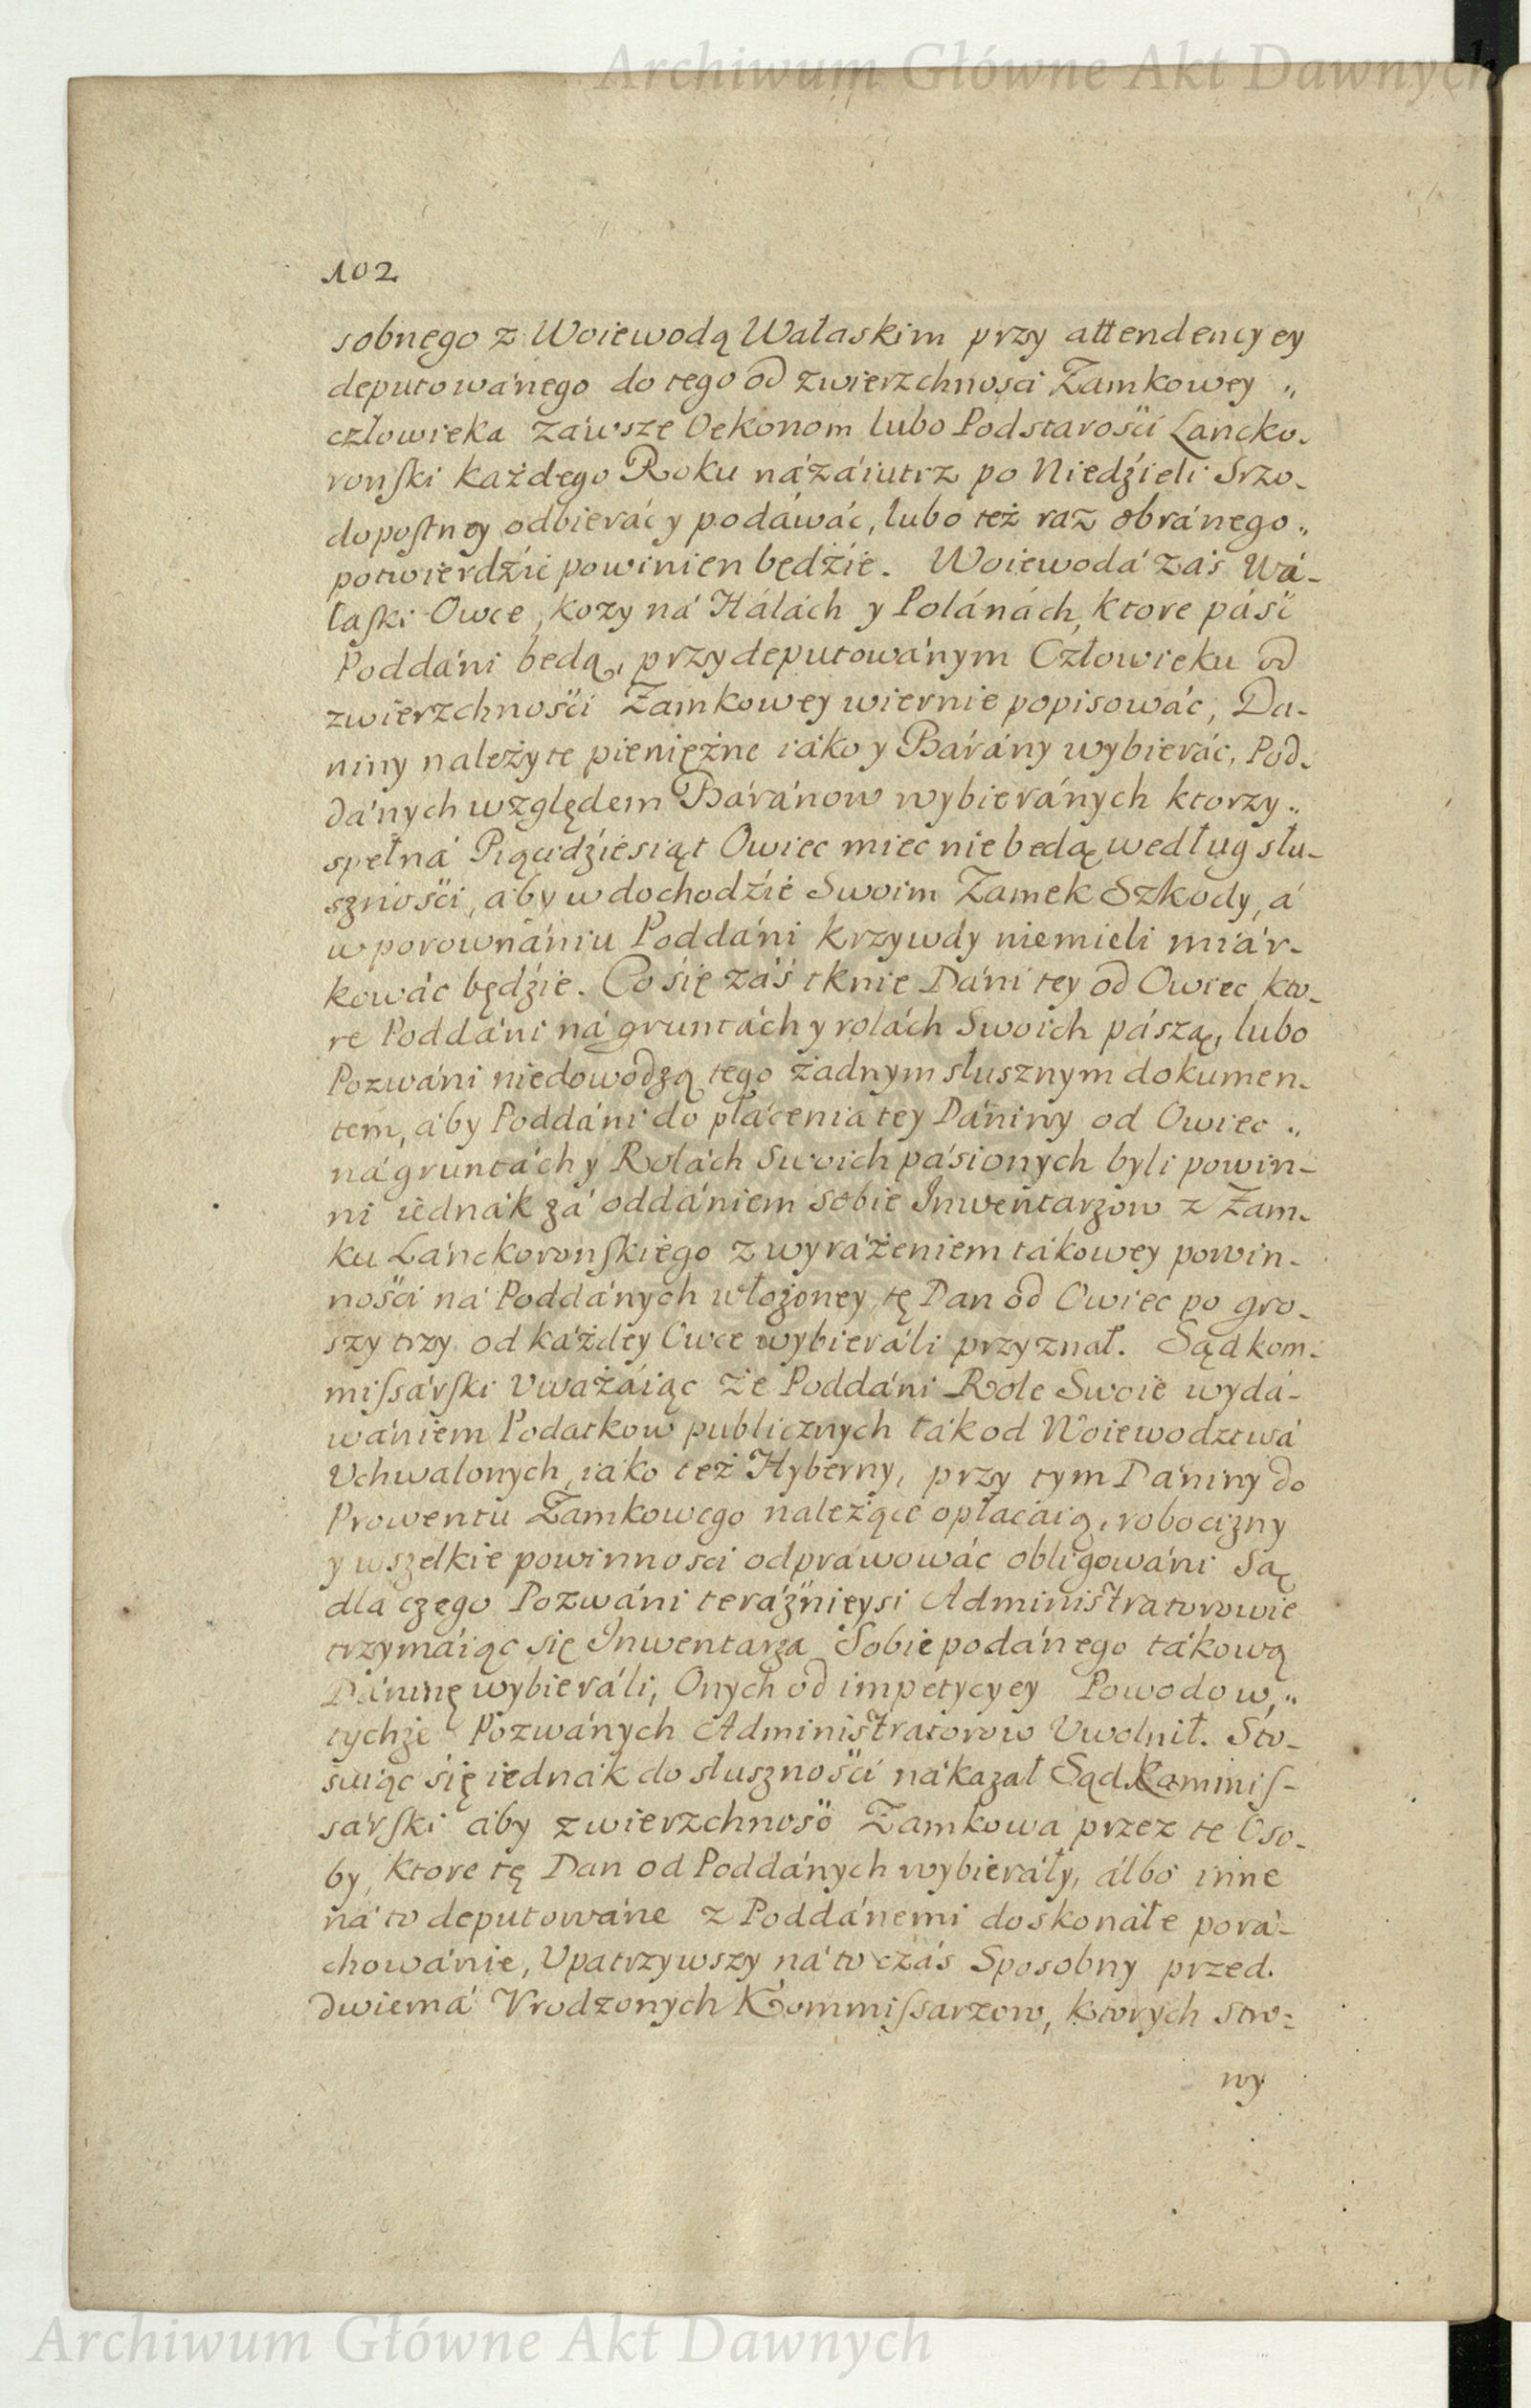 Archiwum Główne Akt Dawnych
102
sobnego z Woiewodą Wałaskim przy attendencyey
deputowánego do tego od zwierzchnosci Zamkowey „
człowieka záwsze Oekonom lubo Podstarośći Lancko-
ronski każdego Roku názáiutrz po Niedźieli Srzo-
dopostney odbieráć y podáwáć, lubo też raz obránego „
potwierdźić powinien będźie. Woiewodá záś Wá-
łaski Owce, kozy ná Hálách y Polánách, ktore páśi
Poddáni będą, przy deputowánym Człowieku od
zwierzchnośći Zamkowey wiernie popisowáć, Da-
niny należyte pieniężne iáko y Bárány wybieráć, Pod-
dánych względem Báránow wybieránych ktorzy „
spełná Pięćdźiesiąt Owiec miec nie będą według słu-
sznośći, áby w dochodźie Swoim Zamek Szkody, á
w porownániu Poddáni krzywdy niemieli miár-
kowáć będźie. Co się záś tknie Dáni tey od Owiec kto-
re Poddáni ná gruntách y rolách Swoich pászą, lubo
Pozwáni niedowodzą tego żadnym słusznym dokumen-
tem, áby Poddáni do płácenia tey Dániny od Owiec „
ná gruntách y Rolách Swoich pásionych byli powin-
ni iednák zá oddániem sobie Inwentarzow z Zam-
ku Lánckoronskiego z wyráżeniem tákowey powin-
nośći ná Poddánych włożoney tę Dan od Owiec po gro-
szy trzy od káżdey Owce wybieráli przyznał. Sąd kom-
missárski Uważáiąc że Poddáni Role Swoie wydá-
wániem Podatkow publicznych ták od Woiewodztwá
Uchwalonych iáko też Hyberny, przy tym Dániny do
Prowentu Zamkowego należące opłacáią, robocizny
y wszelkie powinnosci odpráwowáć obligowáni Są
dla czego Pozwáni teráźnieysi Administratorowie
trzymáiąc się Inwentarza Sobie podánego tákową
Dáninę wybieráli, Onych od impetycyey Powodow, „
tychże Pozwánych Administratorow Uwolnił. Sto-
suiąc się iednák do słusznośći nákazał Sąd Kommis-
sárski áby zwierzchność Zamkowa przez te Oso-
by, ktore tę Dan od Poddánych wybieráły, álbo inne
ná to deputowáne z Poddánemi doskonáłe porá-
chowánie, Upatrzywszy ná to czás Sposobny przed
dwiemá Vrodzonych Kommissarzow, ktorych stro-
wy
Archiwum Główne Akt Dawnych